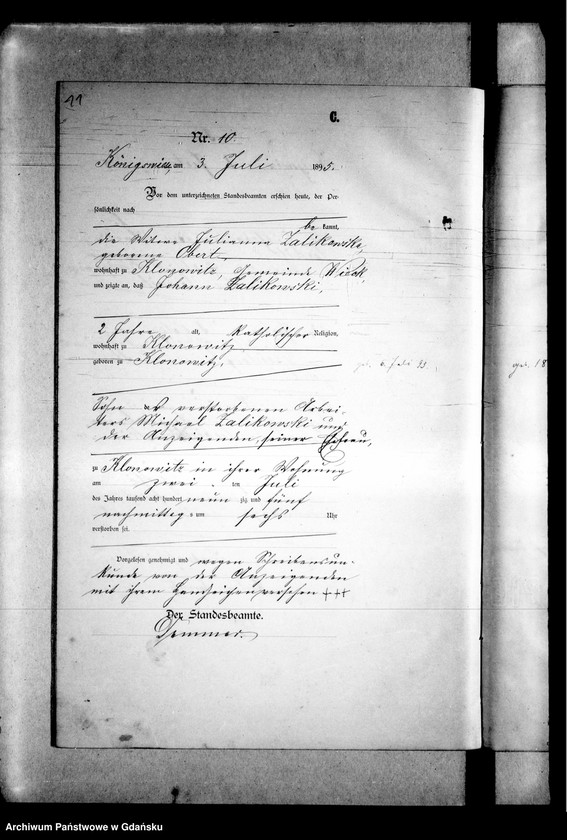 11
C.
Nr. 10.
Königswiese, am 3. Juli 1895.
Vor dem unterzeichneten Standesbeamten erschien heute, der Per-
sönlichkeit nach
be kannt,
die Witwe Julianna Zalikowska,
geborene Obert,
wohnhaft zu Klonowitz, Gemeinde Wieck,
und zeigte an, daß Johann Zalikowski,
2 Jahre alt, katholischer Religion,
wohnhaft zu Klonowitz
geboren zu Klonowitz,
Sohn des verstorbenen Arbei-
ters Michael Zalikowski und
der Anzeigenden, seiner Ehefrau,
zu Klonowitz in ihrer Wohnung
am zwei ten Juli
des Jahres tausend acht hundert neun zig und fünf
nachmittag s um sechs Uhr
verstorben sei.
Vorgelesen, genehmigt und wegen Schreibensun-
kunde von der Anzeigenden
mit ihrem Handzeichen versehen +++
Der Standesbeamte.
Archiwum Państwowe w Gdańsku